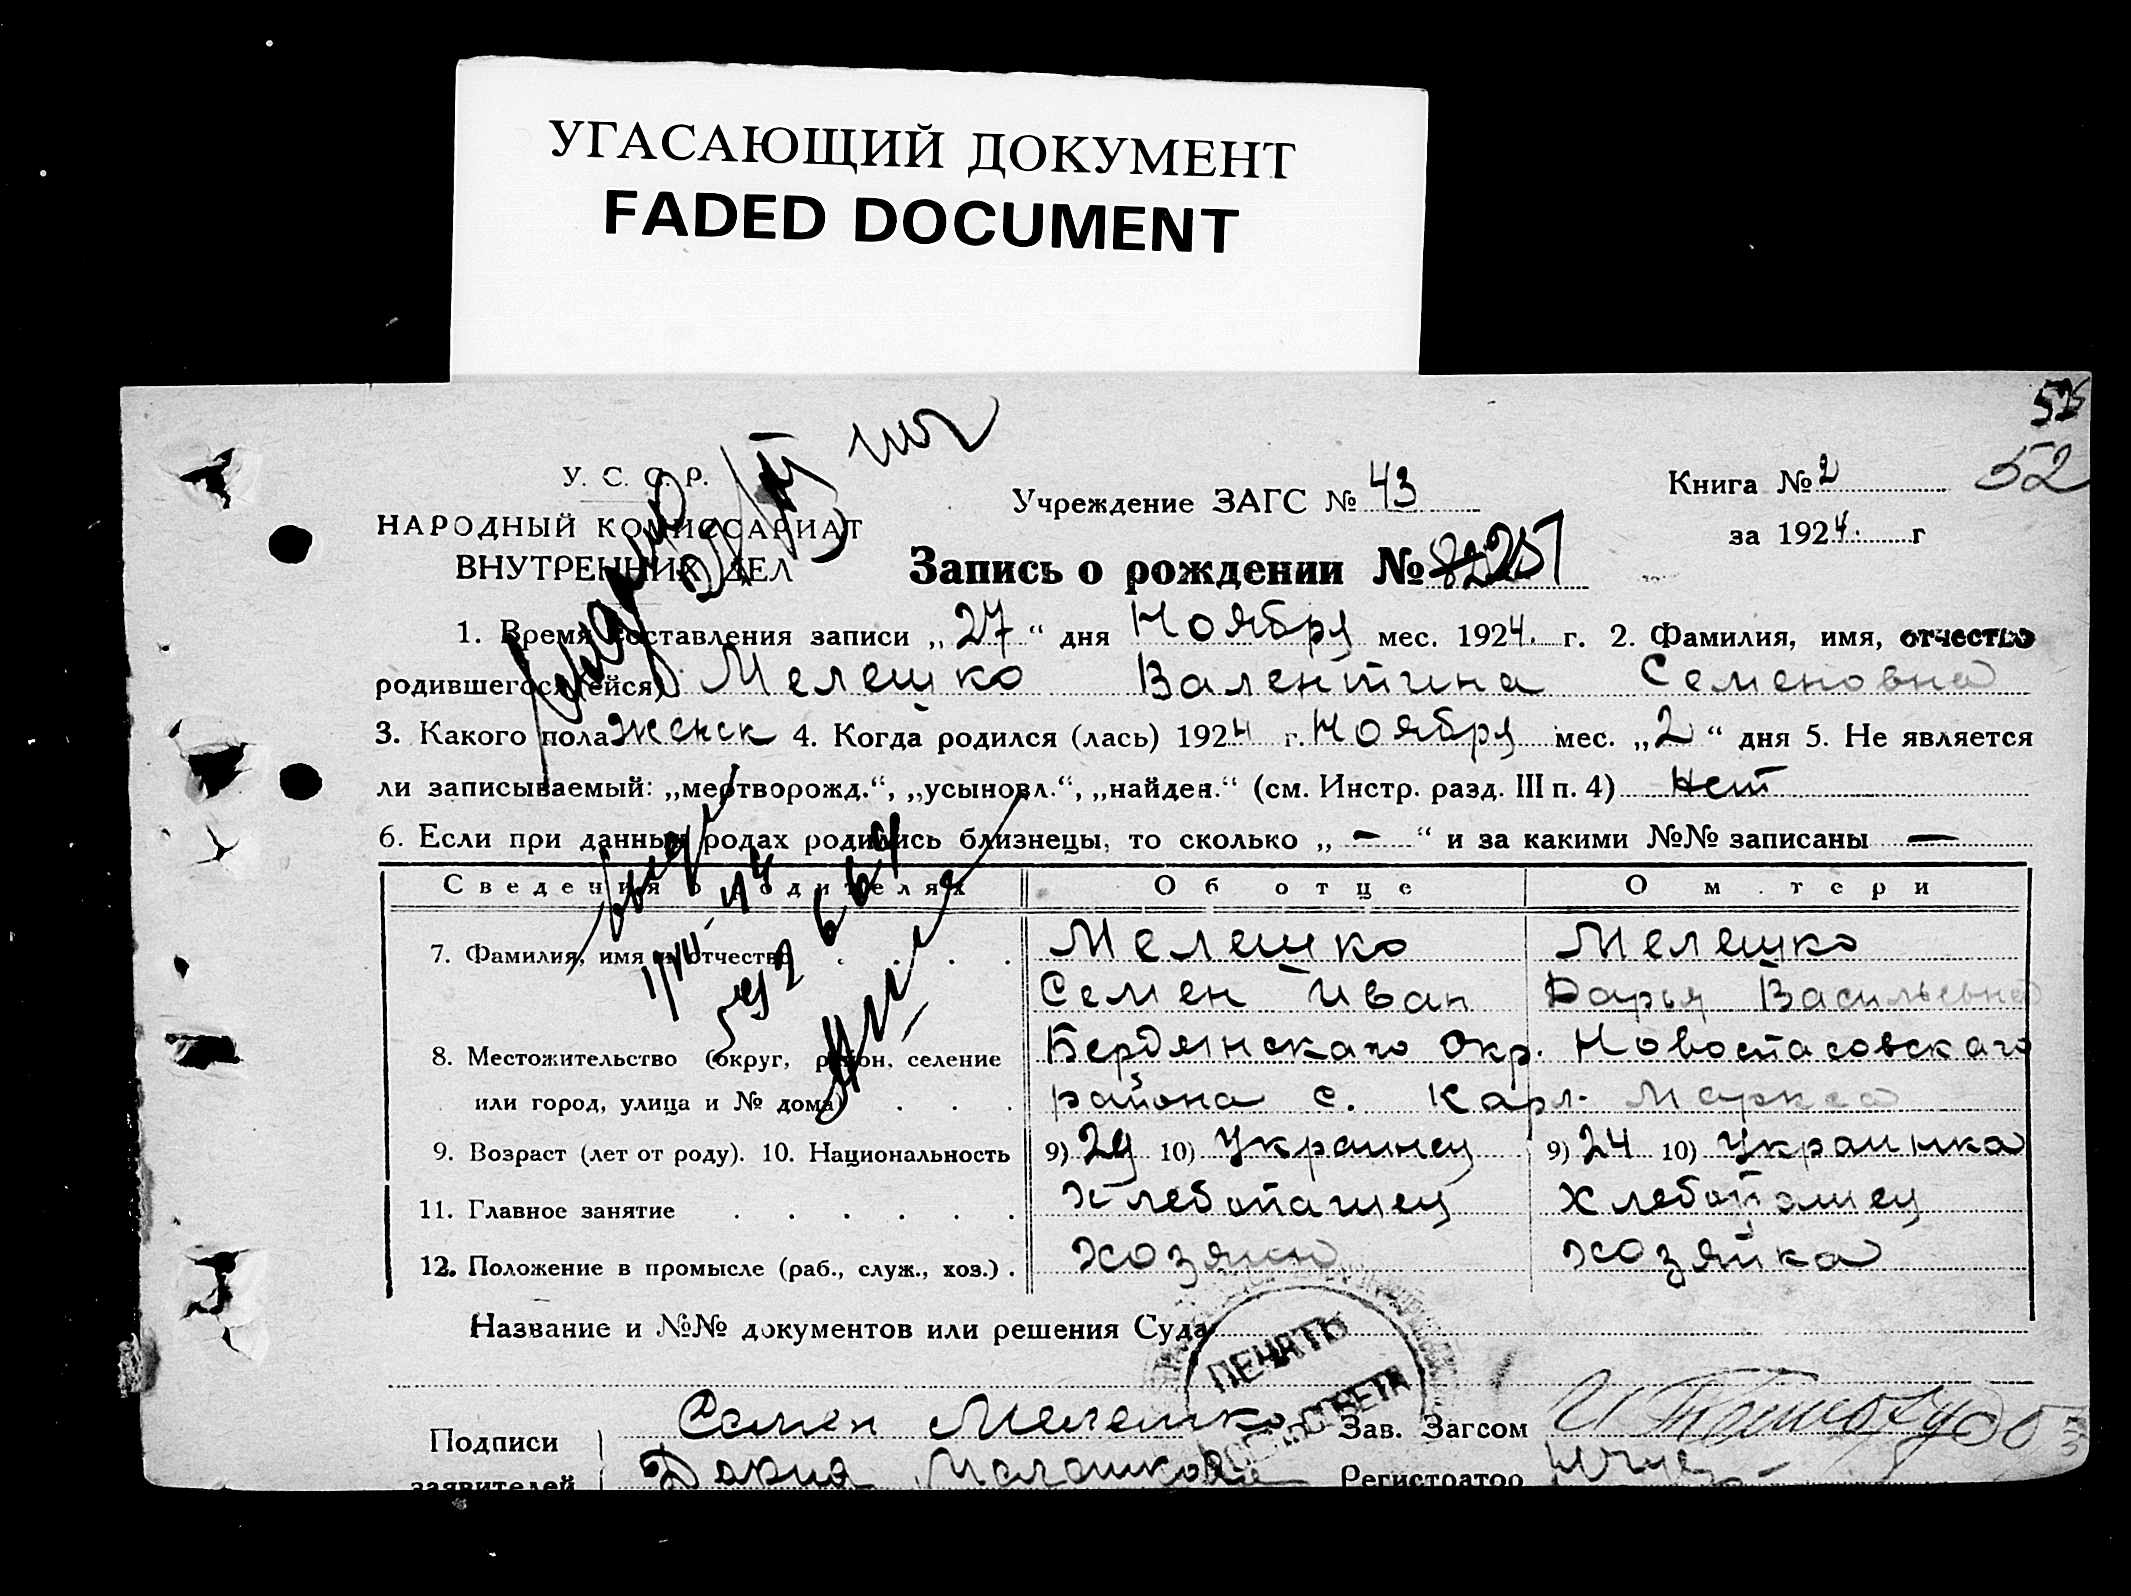 УГАСАЮЩИЙ ДОКУМЕНТ
FADED DOCUMENT
52
У. С. С. Р.
НАРОДНЫЙ КОМИССАРИАТ
ВНУТРЕННИХ ДЕЛ
Учреждение ЗАГС № 43
Книга № 2
за 1924. г
Запись о рождении № 257
1. Время составления записи „ 27 “ дня Ноября мес. 1924. г. 2. Фамилия, имя, отчество
родившегося (ейся) Мелешко Валентина Семеновна
3. Какого пола Женск 4. Когда родился (лась) 1924 г. Ноября мес. „ 2 “ дня 5. Не является
ли записываемый: „мертворожд.“, „усыновл.“, „найден.“ (см. Инстр. разд. III п. 4) Нет
6. Если при данных родах родились близнецы, то сколько „ – “ и за какими №№ записаны —
Сведения о родителях Об отце О м тери
7. Фамилия, имя и отчество Мелешко Мелешко
Семен Иван Дарья Васильевна
8. Местожительство (округ, район, селение Бердянскаго Окр. Новоспасовскаго
или город, улица и № дома) района с. Карл. Маркса
9. Возраст (лет от роду). 10. Национальность 9) 29 10) Украинец 9) 24 10) Украинка
11. Главное занятие Хлебопашец Хлебопашец
12. Положение в промысле (раб., служ., хоз.) Хозяин Хозяйка
Название и №№ документов или решения Суда
ПЕЧАТЬ
Подписи Семен Мелешко Зав. Загсом
заявителей Дария Регистратор